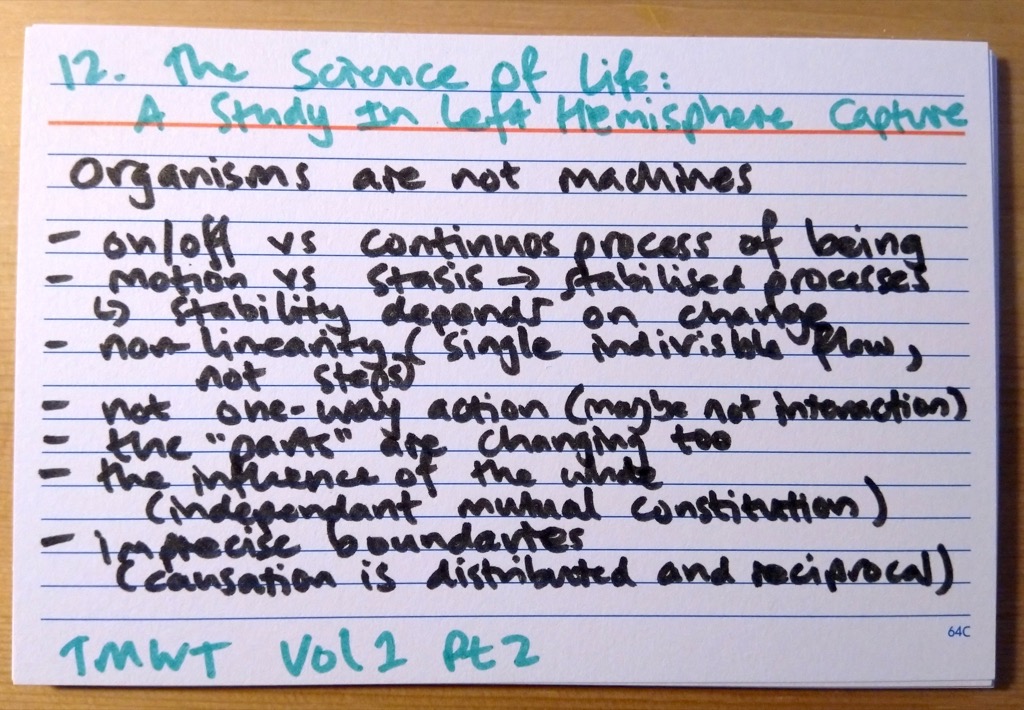 12. The Science of Life:
A Study In Left Hemisphere Capture
Organisms are not machines
- on/off vs continuos process of being
- motion vs stasis → stabilised processes
↳ stability depends on change
- non-linearity (single indivisible flow,
not steps)
- not one-way action (maybe not interaction)
- the "parts" are changing too
- the influence of the whole
(independant mutual constitution)
- imprecise boundaries
(causation is distributed and reciprocal)
64C
TMWT Vol 1 Pt 2